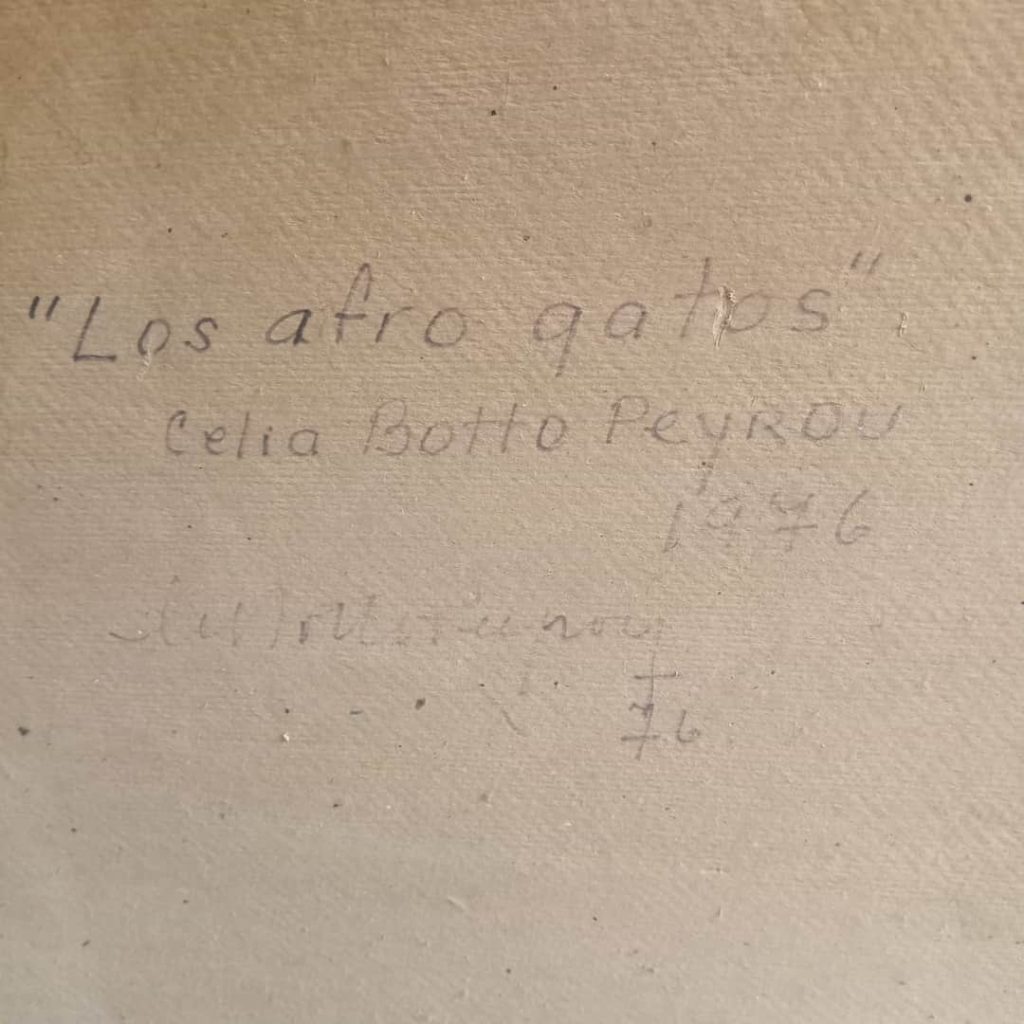 "Los afro gatos"
Celia Botto Peyrou
1976
76